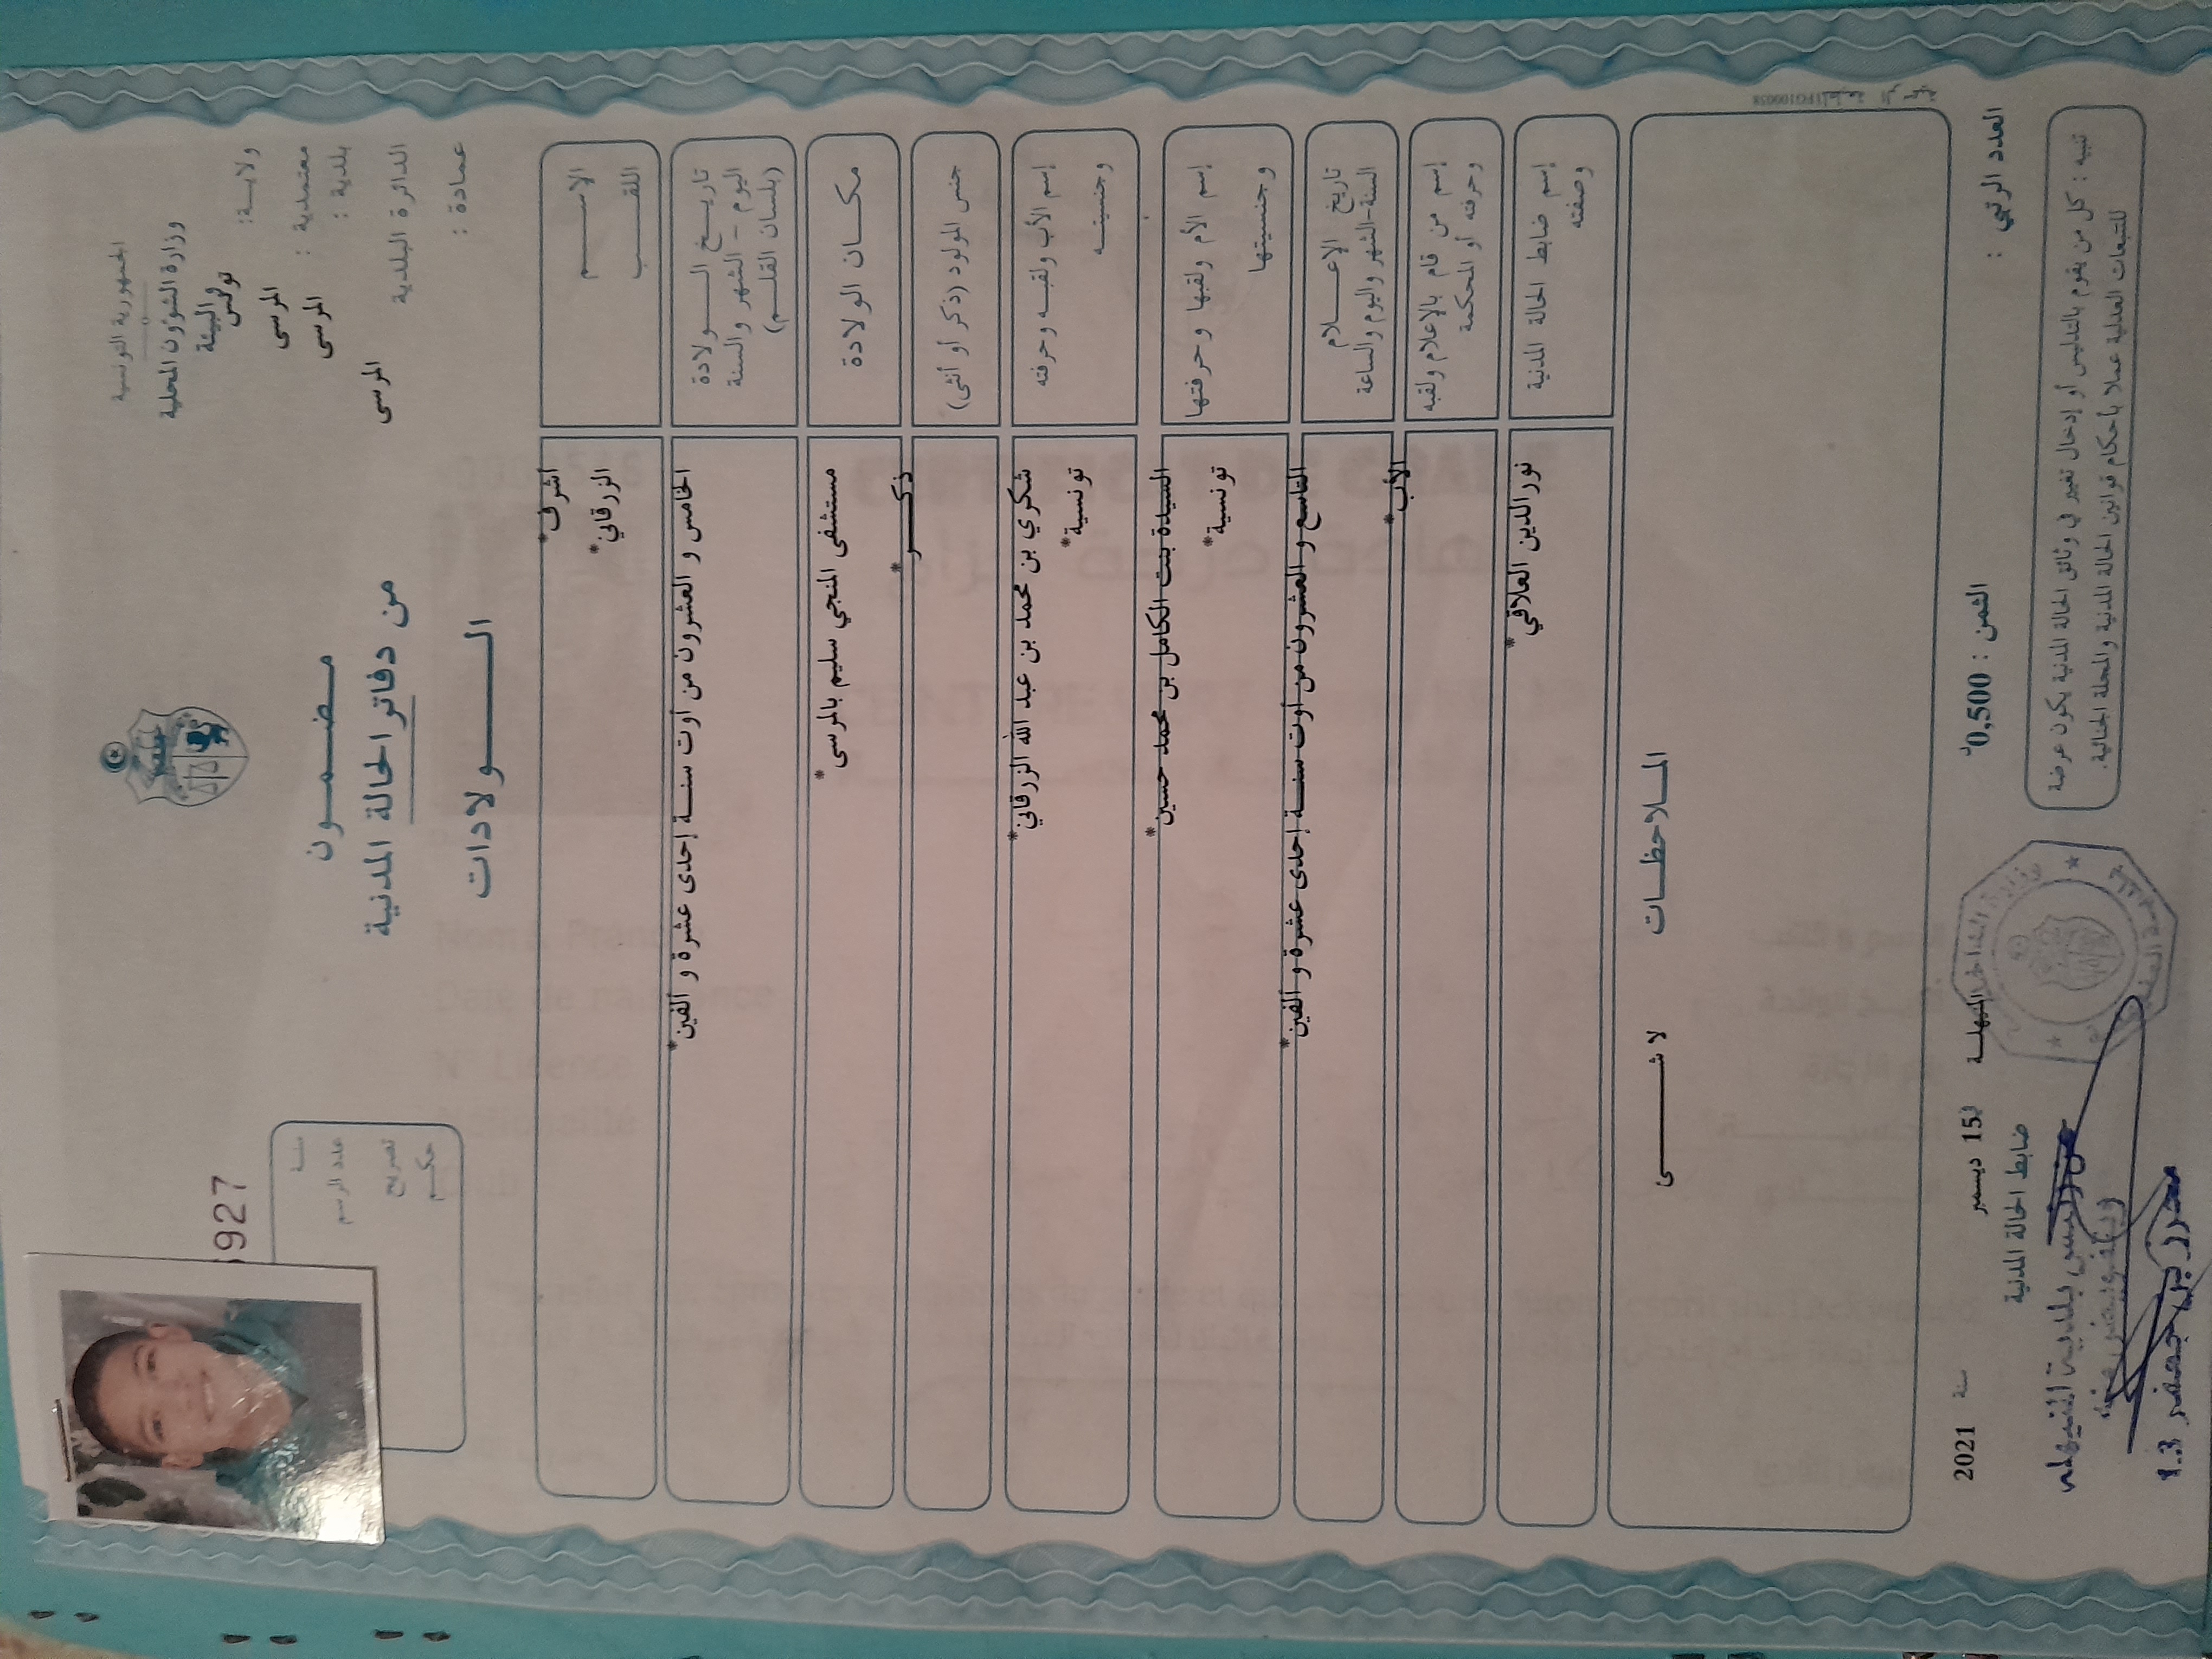 الجمهورية التونسية
وزارة الشؤون المحلية
والبيئة
ولاية: تونس
معتمدية : المرسى
بلدية : المرسى
الدائرة البلدية المرسى
عمادة :
6927
سنة
عدد الرسم
تصريح
حكم
مضمون
من دفاتر الحالة المدنية
الولادات
الاسم
اللقب
اشرف*
الزرقاني*
تاريخ الولادة
اليوم - الشهر والسنة
(بلسان القلم)
الخامس و العشرون من أوت سنة إحدى عشرة و ألفين*
مكان الولادة
مستشفى المنجي سليم بالمرسى*
جنس المولود (ذكر أو أنثى)
ذكر*
إسم الأب ولقبه وحرفته
وجنسيته
شكري بن محمد بن عبد الله الزرقاني*
تونسية*
إسم الأم ولقبها وحرفتها
وجنسيتها
السيدة بنت الكامل بن محمد حسين*
تونسية*
تاريخ الإعلام
السنة-الشهر واليوم والساعة
التاسع و العشرون من أوت سنة إحدى عشرة و ألفين*
إسم من قام بالإعلام ولقبه
وحرفته أو المحكمة
الأب*
إسم ضابط الحالة المدنية
وصفته
نورالدين العلاقي*
الملاحظات
لا شى
العدد الرتبي :
الثمن : 0,500
المنيهلة
15 ديسمبر
سنة 2021
ضابط الحالة المدنية
تنبيه : كل من يقوم بالتدليس أو إدخال تغيير في وثائق الحالة المدنية يكون عرضة
للتتبعات العدلية عملا بأحكام قوانين الحالة المدنية والمجلة الجنائية.
عن رئيس بلدية المنيهلة